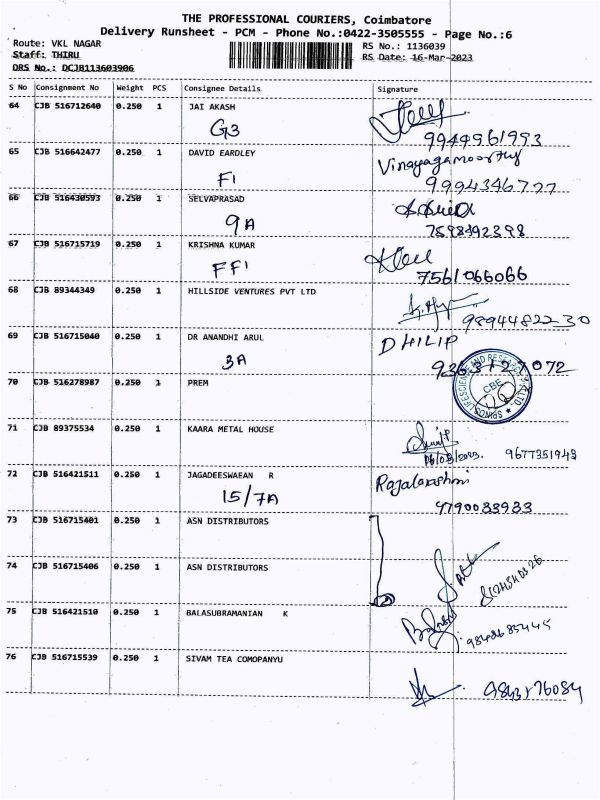 THE PROFESSIONAL COURIERS, Coimbatore
Delivery Runsheet - PCM - Phone No.:0422-3505555 - Page No.:6
Route: VKL NAGAR RS No.: 1136039
Staff: THIRU RS Date: 16-Mar-2023
DRS No.: DCJB113603906
S No Consignment No Weight PCS Consignee Details Signature
64 CJB 516712640 0.250 1 JAI AKASH
G3 9944961993
65 CJB 516642477 0.250 1 DAVID EARDLEY Vinayagamoorthy
F1 9994346777
66 CJB 516430593 0.250 1 SELVAPRASAD
9A 7598192398
67 CJB 516715719 0.250 1 KRISHNA KUMAR
FF1 7561066066
68 CJB 89344349 0.250 1 HILLSIDE VENTURES PVT LTD
9894482230
69 CJB 516715040 0.250 1 DR ANANDHI ARUL DHILIP
3A 9363127072
70 CJB 516278987 0.250 1 PREM CBE
71 CJB 89375534 0.250 1 KAARA METAL HOUSE
9677351943
72 CJB 516421511 0.250 1 JAGADEESWAEAN R Rajalakshmi
15/7A 4790033933
73 CJB 516715401 0.250 1 ASN DISTRIBUTORS
74 CJB 516715406 0.250 1 ASN DISTRIBUTORS
75 CJB 516421510 0.250 1 BALASUBRAMANIAN K
9842685445
76 CJB 516715539 0.250 1 SIVAM TEA COMOPANYU
9843176084